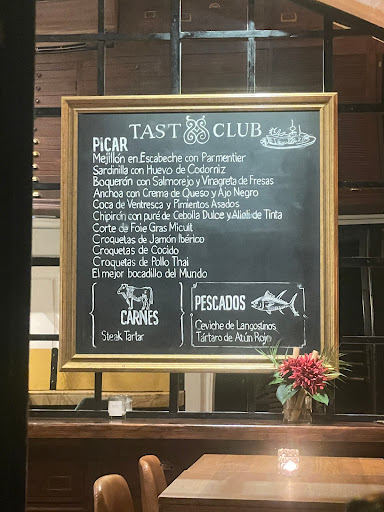 TAST CLUB
PiCAR
Mejillón en Escabeche con Parmentier
Sardinilla con Huevo de Codorniz
Boquerón con Salmorejo y Vinagreta de Fresas
Anchoa con Crema de Queso y Ajo Negro
Coca de Ventresca y Pimientos Asados
Chipirón con puré de Cebolla Dulce y Alioli de Tinta
Corte de Foie Gras Micuit
Croquetas de Jamón Ibérico
Croquetas de Cocido
Croquetas de Pollo Thai
El mejor bocadillo del Mundo
CARNES
Steak Tartar
PESCADOS
Ceviche de Langostinos
Tártaro de Atún Rojo